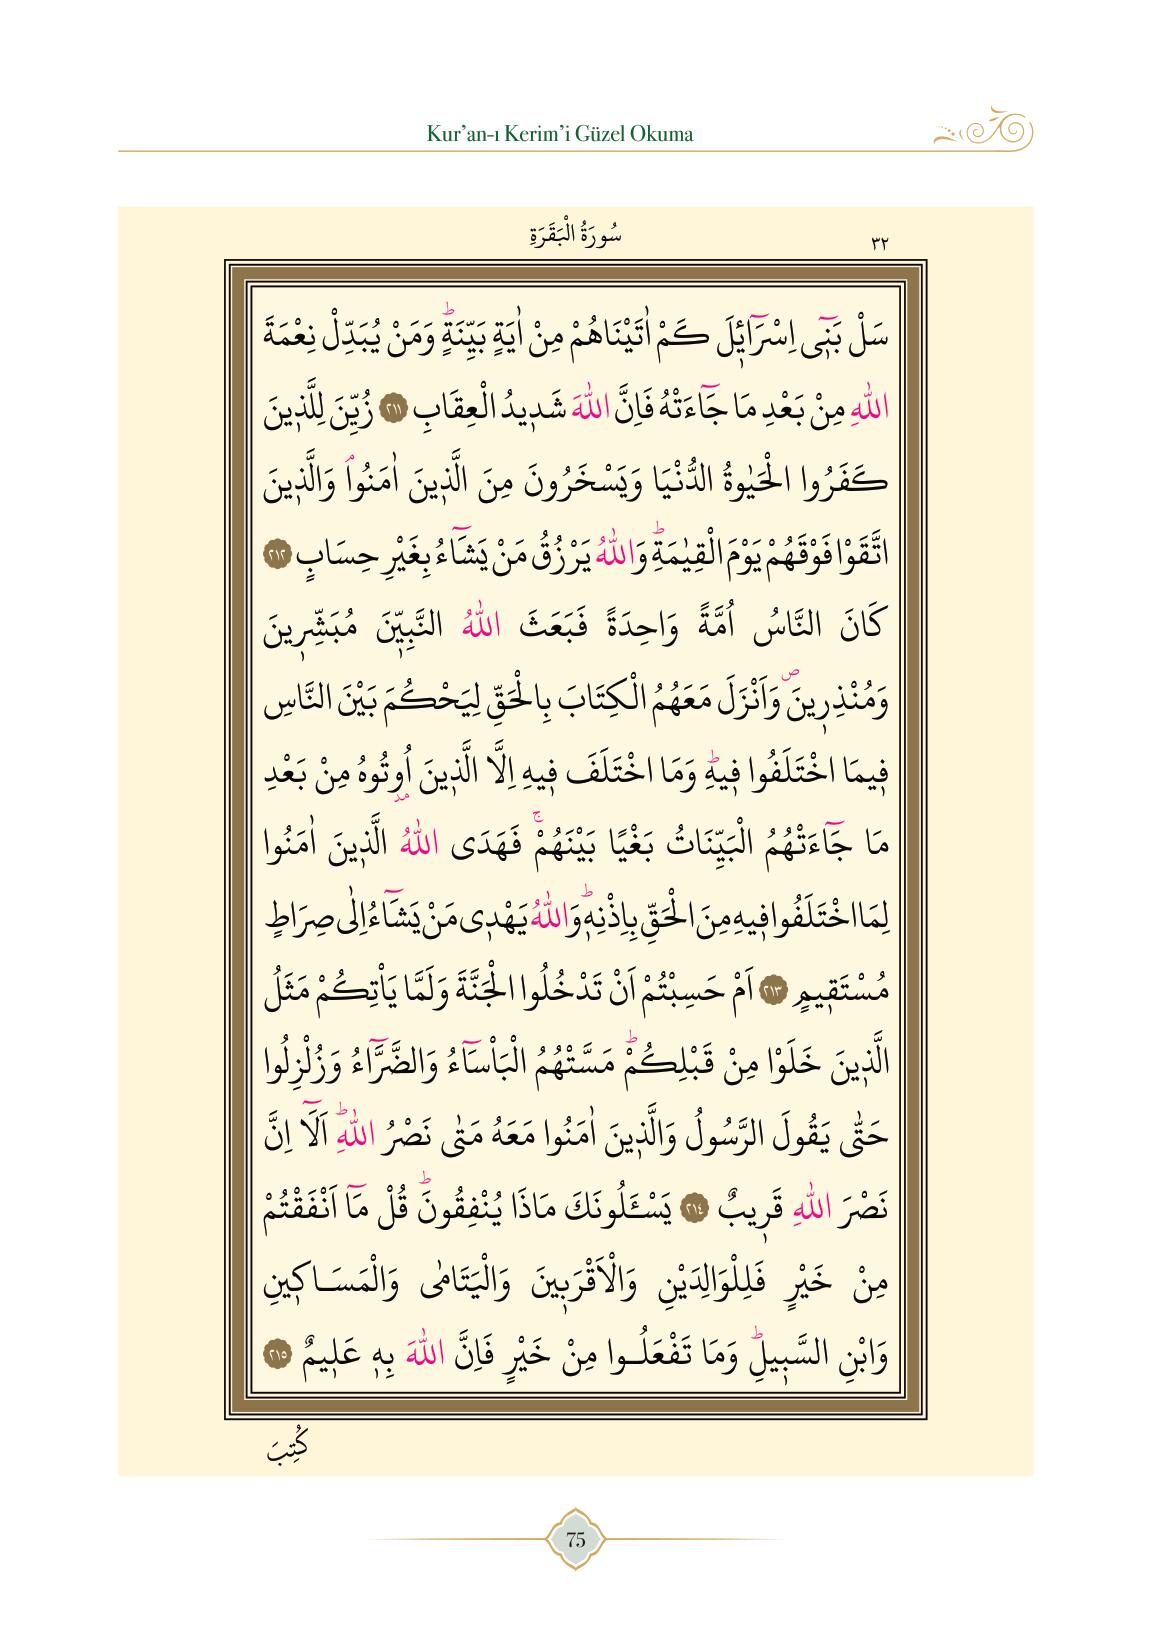 Kur’an-ı Kerim’i Güzel Okuma
سُورَةُ الْبَقَرَةِ
٣٢
سَلْ بَنٖٓى اِسْرَٓائٖلَ كَمْ اٰتَيْنَاهُمْ مِنْ اٰيَةٍ بَيِّنَةٍؕ وَمَنْ يُبَدِّلْ نِعْمَةَ
اللّٰهِ مِنْ بَعْدِ مَا جَٓاءَتْهُ فَاِنَّ اللّٰهَ شَدٖيدُ الْعِقَابِ ﴿٢١١﴾ زُيِّنَ لِلَّذٖينَ
كَفَرُوا الْحَيٰوةُ الدُّنْيَا وَيَسْخَرُونَ مِنَ الَّذٖينَ اٰمَنُواۘ وَالَّذٖينَ
اتَّقَوْا فَوْقَهُمْ يَوْمَ الْقِيٰمَةِؕ وَاللّٰهُ يَرْزُقُ مَنْ يَشَٓاءُ بِغَيْرِ حِسَابٍ ﴿٢١٢﴾
كَانَ النَّاسُ اُمَّةً وَاحِدَةً فَبَعَثَ اللّٰهُ النَّبِيّٖنَ مُبَشِّرٖينَ
وَمُنْذِرٖينَࣕ وَاَنْزَلَ مَعَهُمُ الْكِتَابَ بِالْحَقِّ لِيَحْكُمَ بَيْنَ النَّاسِ
فٖيمَا اخْتَلَفُوا فٖيهِؕ وَمَا اخْتَلَفَ فٖيهِ اِلَّا الَّذٖينَ اُو۫تُوهُ مِنْ بَعْدِ
مَا جَٓاءَتْهُمُ الْبَيِّنَاتُ بَغْيًا بَيْنَهُمْۚ فَهَدَى اللّٰهُ الَّذٖينَ اٰمَنُوا
لِمَا اخْتَلَفُوا فٖيهِ مِنَ الْحَقِّ بِاِذْنِهٖؕ وَاللّٰهُ يَهْدٖى مَنْ يَشَٓاءُ اِلٰى صِرَاطٍ
مُسْتَقٖيمٍ ﴿٢١٣﴾ اَمْ حَسِبْتُمْ اَنْ تَدْخُلُوا الْجَنَّةَ وَلَمَّا يَاْتِكُمْ مَثَلُ
الَّذٖينَ خَلَوْا مِنْ قَبْلِكُمْؕ مَسَّتْهُمُ الْبَاْسَٓاءُ وَالضَّرَّٓاءُ وَزُلْزِلُوا
حَتّٰى يَقُولَ الرَّسُولُ وَالَّذٖينَ اٰمَنُوا مَعَهُ مَتٰى نَصْرُ اللّٰهِؕ اَلَٓا اِنَّ
نَصْرَ اللّٰهِ قَرٖيبٌ ﴿٢١٤﴾ يَسْـَٔلُونَكَ مَاذَا يُنْفِقُونَؕ قُلْ مَٓا اَنْفَقْتُمْ
مِنْ خَيْرٍ فَلِلْوَالِدَيْنِ وَالْاَقْرَبٖينَ وَالْيَتَامٰى وَالْمَسَاكٖينِ
وَابْنِ السَّبٖيلِؕ وَمَا تَفْعَلُوا مِنْ خَيْرٍ فَاِنَّ اللّٰهَ بِهٖ عَلٖيمٌ ﴿٢١٥﴾
كُتِبَ
75